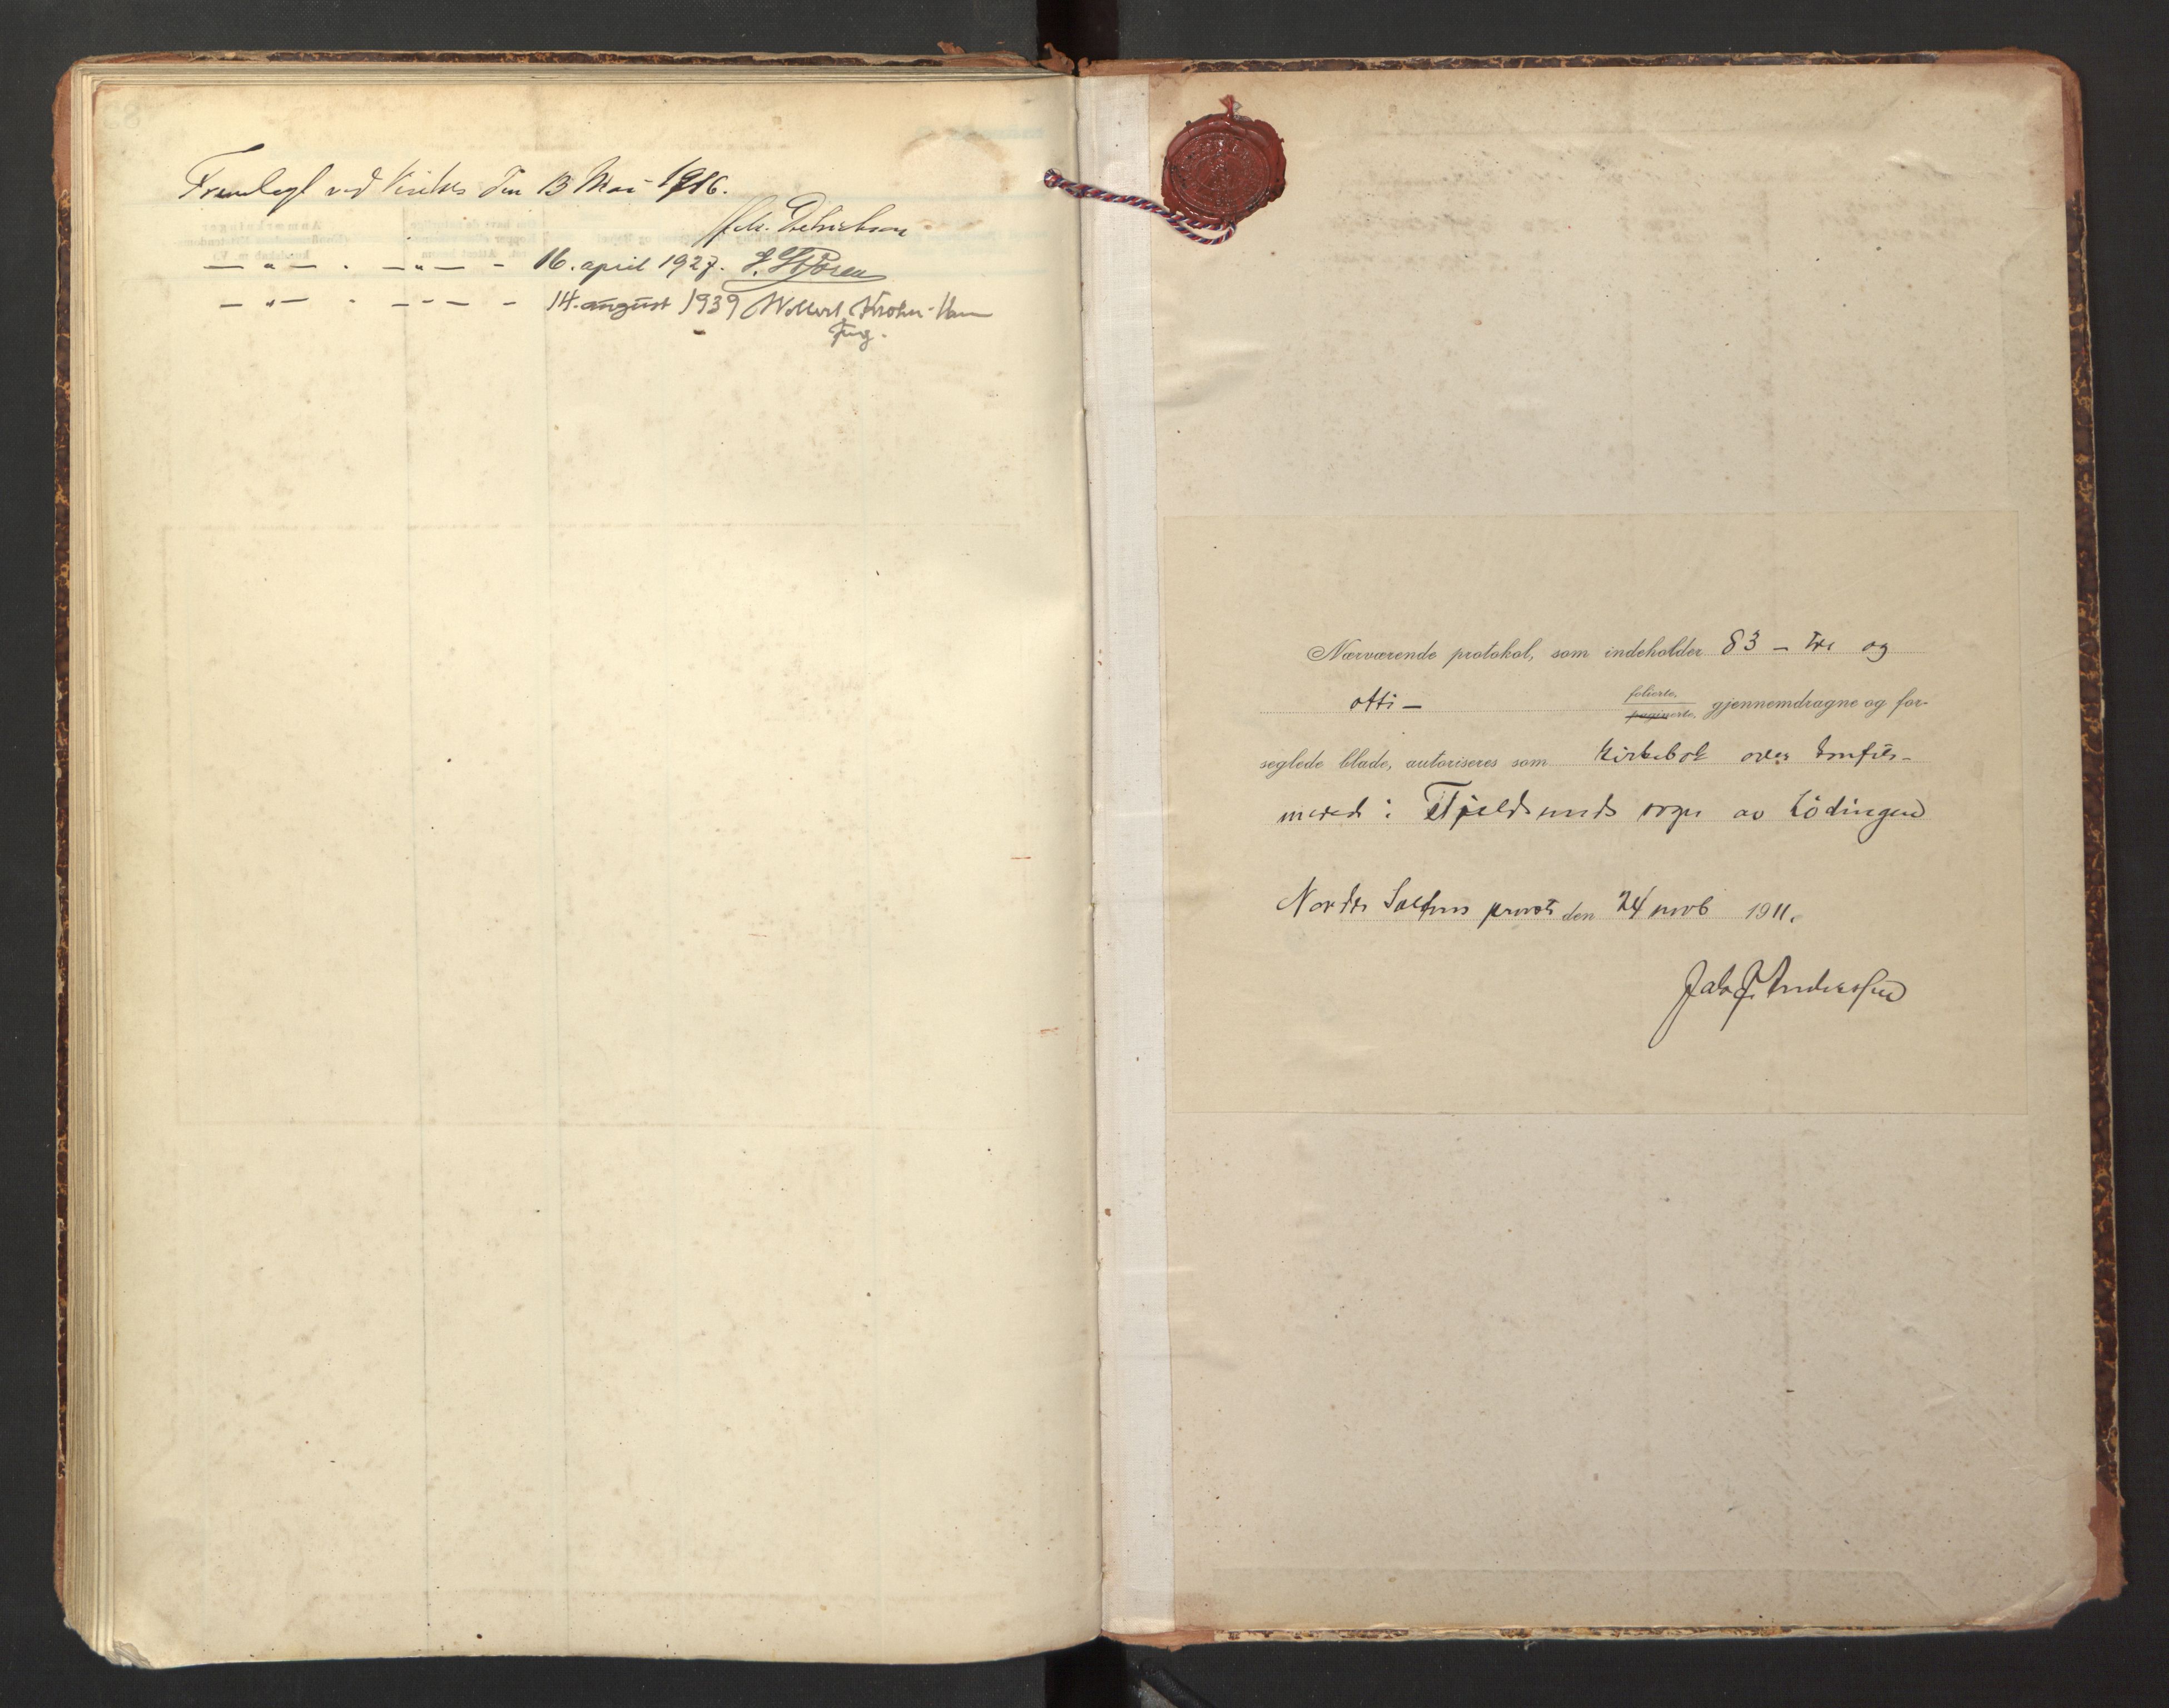 Fremlagt ved Visitas den 13 Mai 1916.
— " — . — " — - 16. april 1927. E. Støren
— " — . — " — - 14. august 1939 Wollert Krohn-Han
fung.
Nærværende protokol, som indeholder 83 — tre og
otti — folierte, paginerte, gjennemdragne og for-
seglede blade, autoriseres som Kirkebok over konfir-
merede i Tjeldsunds sogn av Lödingen
Nordre Saltens prosti den 24 novb 1911.
Jak. J. Anderssen